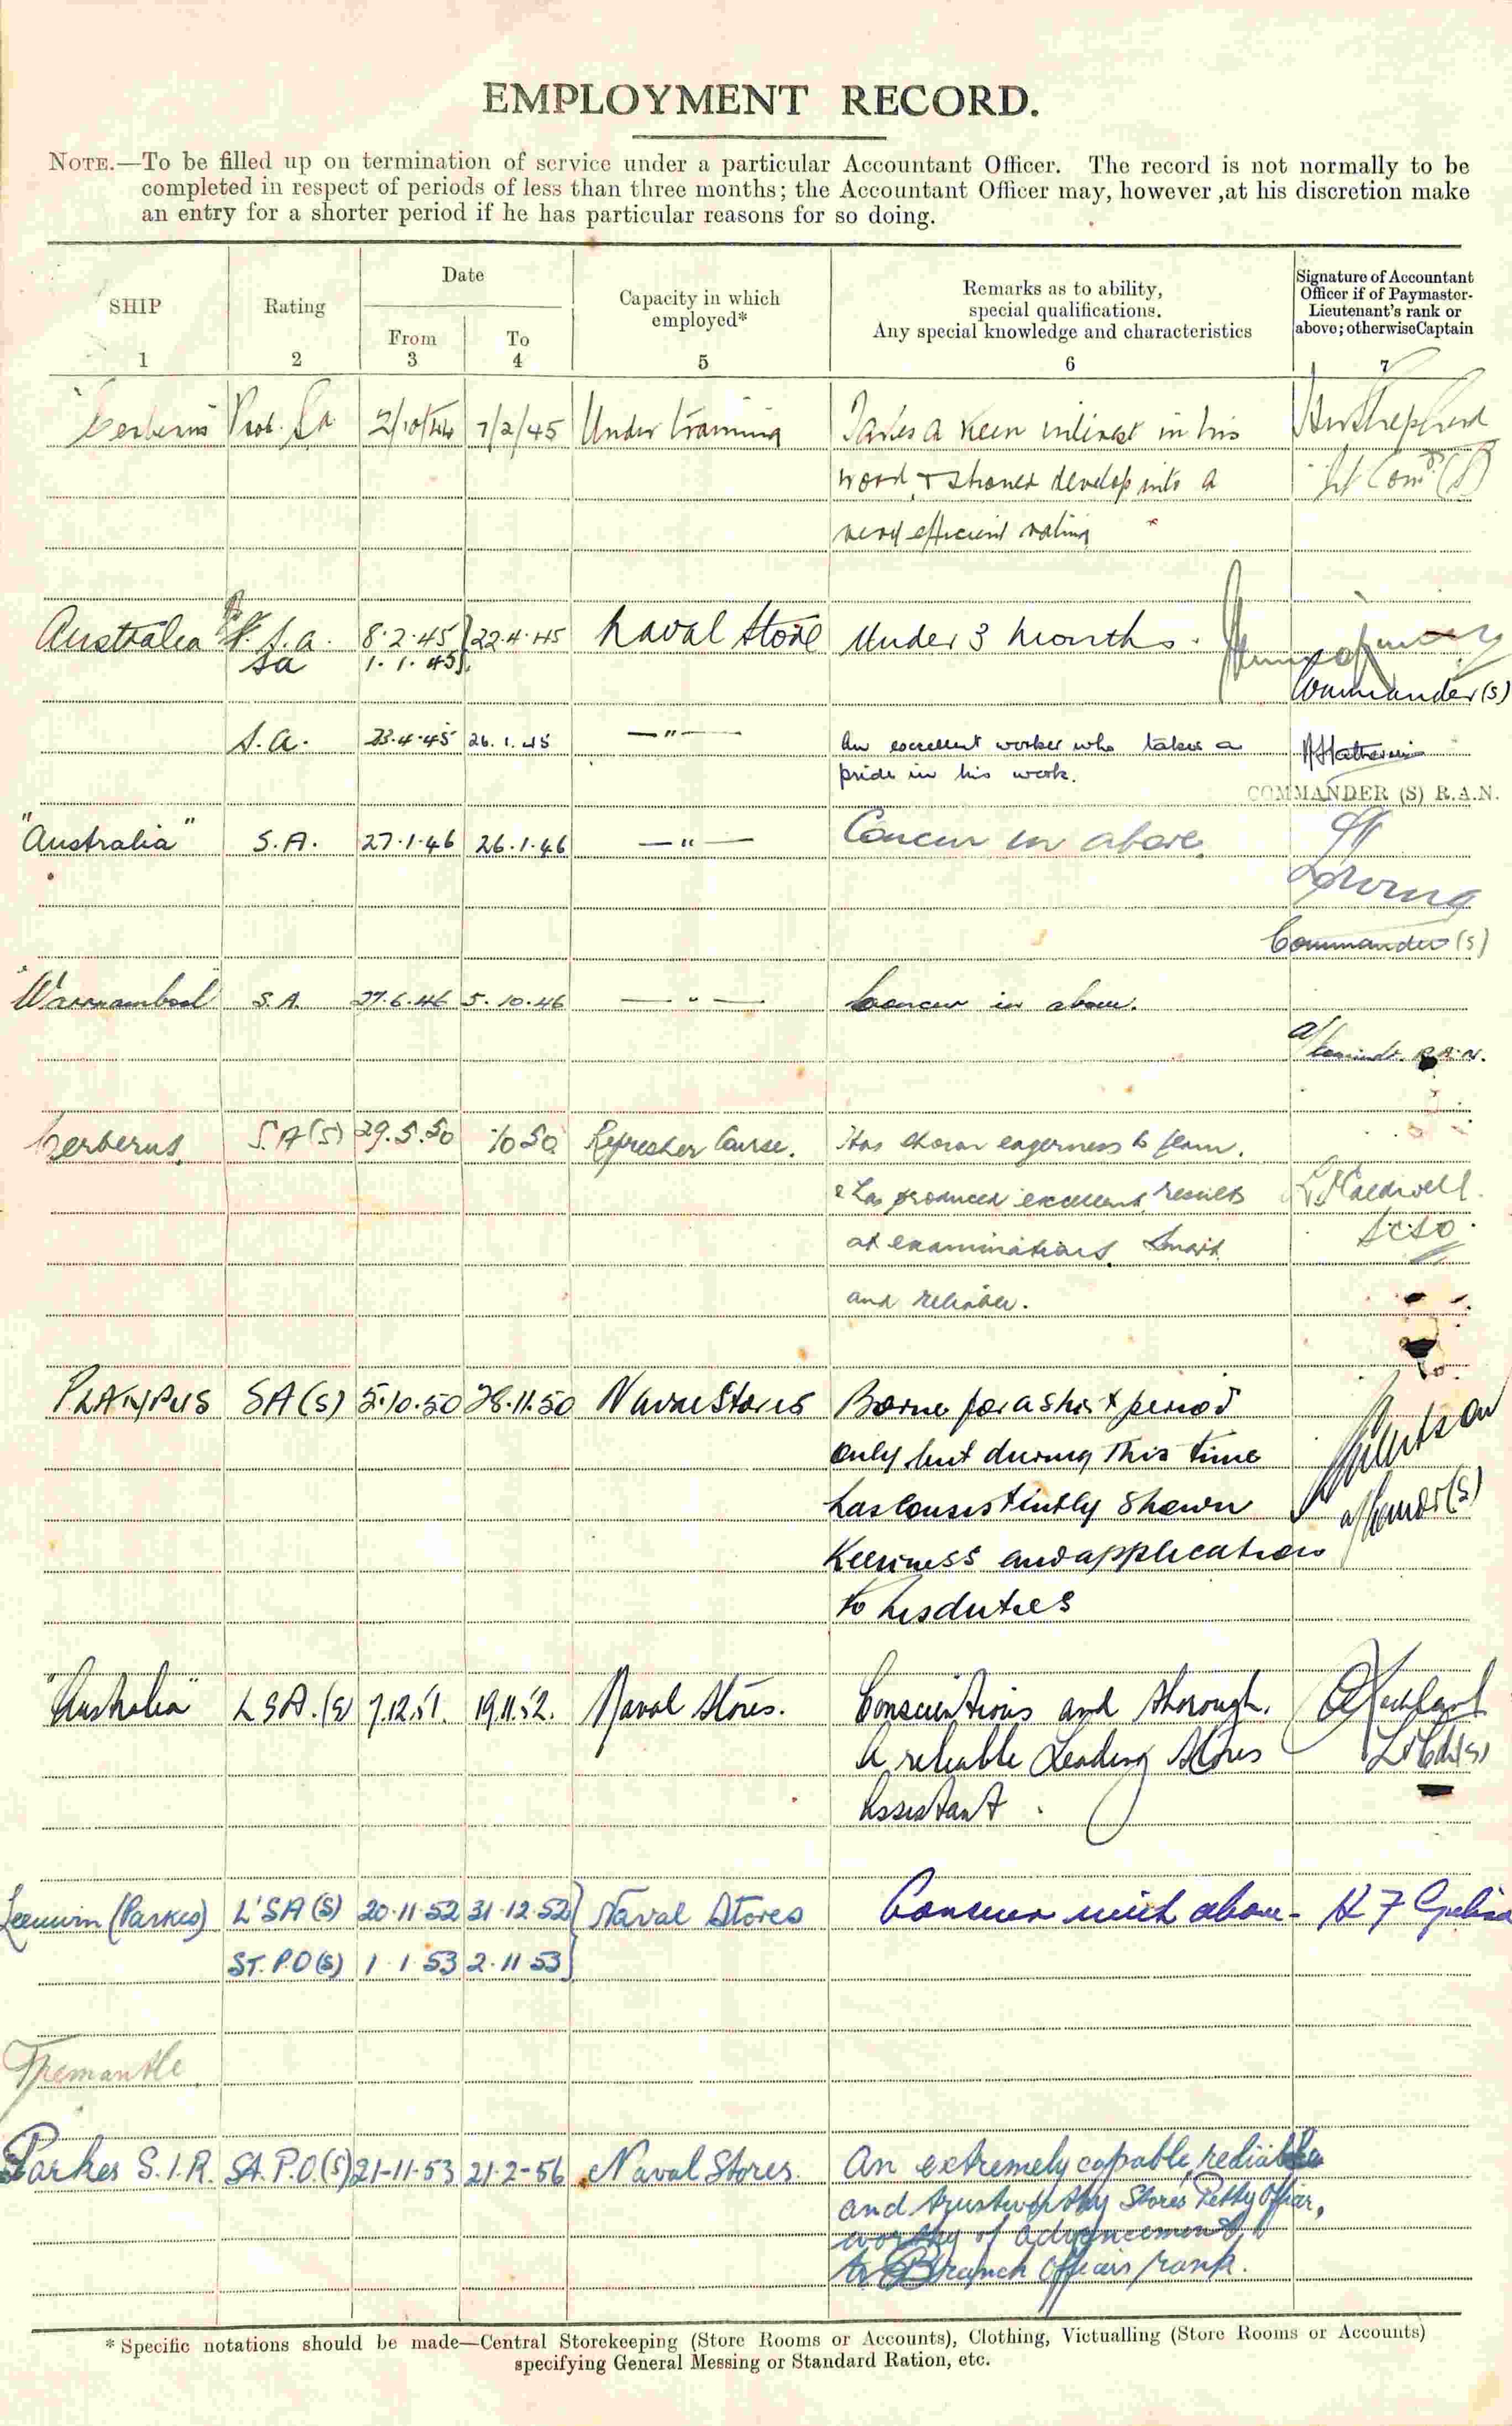 EMPLOYMENT RECORD.
NOTE.—To be filled up on termination of service under a particular Accountant Officer. The record is not normally to be
completed in respect of periods of less than three months; the Accountant Officer may, however ,at his discretion make
an entry for a shorter period if he has particular reasons for so doing.
SHIP Rating Date Capacity in which employed* Remarks as to ability, special qualifications. Any special knowledge and characteristics Signature of Accountant Officer if of Paymaster-Lieutenant's rank or above; otherwise Captain
From To
1 2 3 4 5 6 7
"Cerberus" Prob. SA 2/10/44 7/2/45 Under training Takes a keen interest in his
work, & should develop into a Lt Comdr (S)
very efficient rating
Australia P.S.A. 8.2.45 } 22.4.45 Naval Store Under 3 months.
SA 1.1.45 } Commander (s)
S.A. 23.4.45 26.1.45 — " — An excellent worker who takes a
pride in his work. COMMANDER (S) R.A.N.
"Australia" S.A. 27.1.46 26.1.46 — " — Concur in above.
Commander (s)
"Warrnambool" S.A. 27.6.46 5.10.46 — " — Concur in above.
R.A.N.
Cerberus. S.A(S) 29.5.50 Refresher Course. Has shown eagerness to learn.
& has produced excellent results Caldwell.
at examinations. Smart
and reliable.
PLATYPUS SA(S) 5.10.50 28.11.50 Naval Stores Borne for a short period
only but during this time
has consistently shown
Keenness and application
to his duties
"Australia" LSA.(S) 7.12.51. 19.11.52. Naval Stores. Conscientious and thorough.
A reliable Leading Stores Lt Cdr(S)
Assistant.
Leeuwin (Parkes) L'SA(S) 20.11.52 31.12.52 } Naval Stores Concur with above - H F
ST.P.O(S) 1.1.53 2.11.53 }
Fremantle.
Parkes S.I.R. St.P.O.(S) 21-11-53 21-2-56 Naval Stores. An extremely capable, reliable
and trustworthy Stores Petty Officer,
worthy of advancement
to Branch Officers rank.
* Specific notations should be made—Central Storekeeping (Store Rooms or Accounts), Clothing, Victualling (Store Rooms or Accounts)
specifying General Messing or Standard Ration, etc.